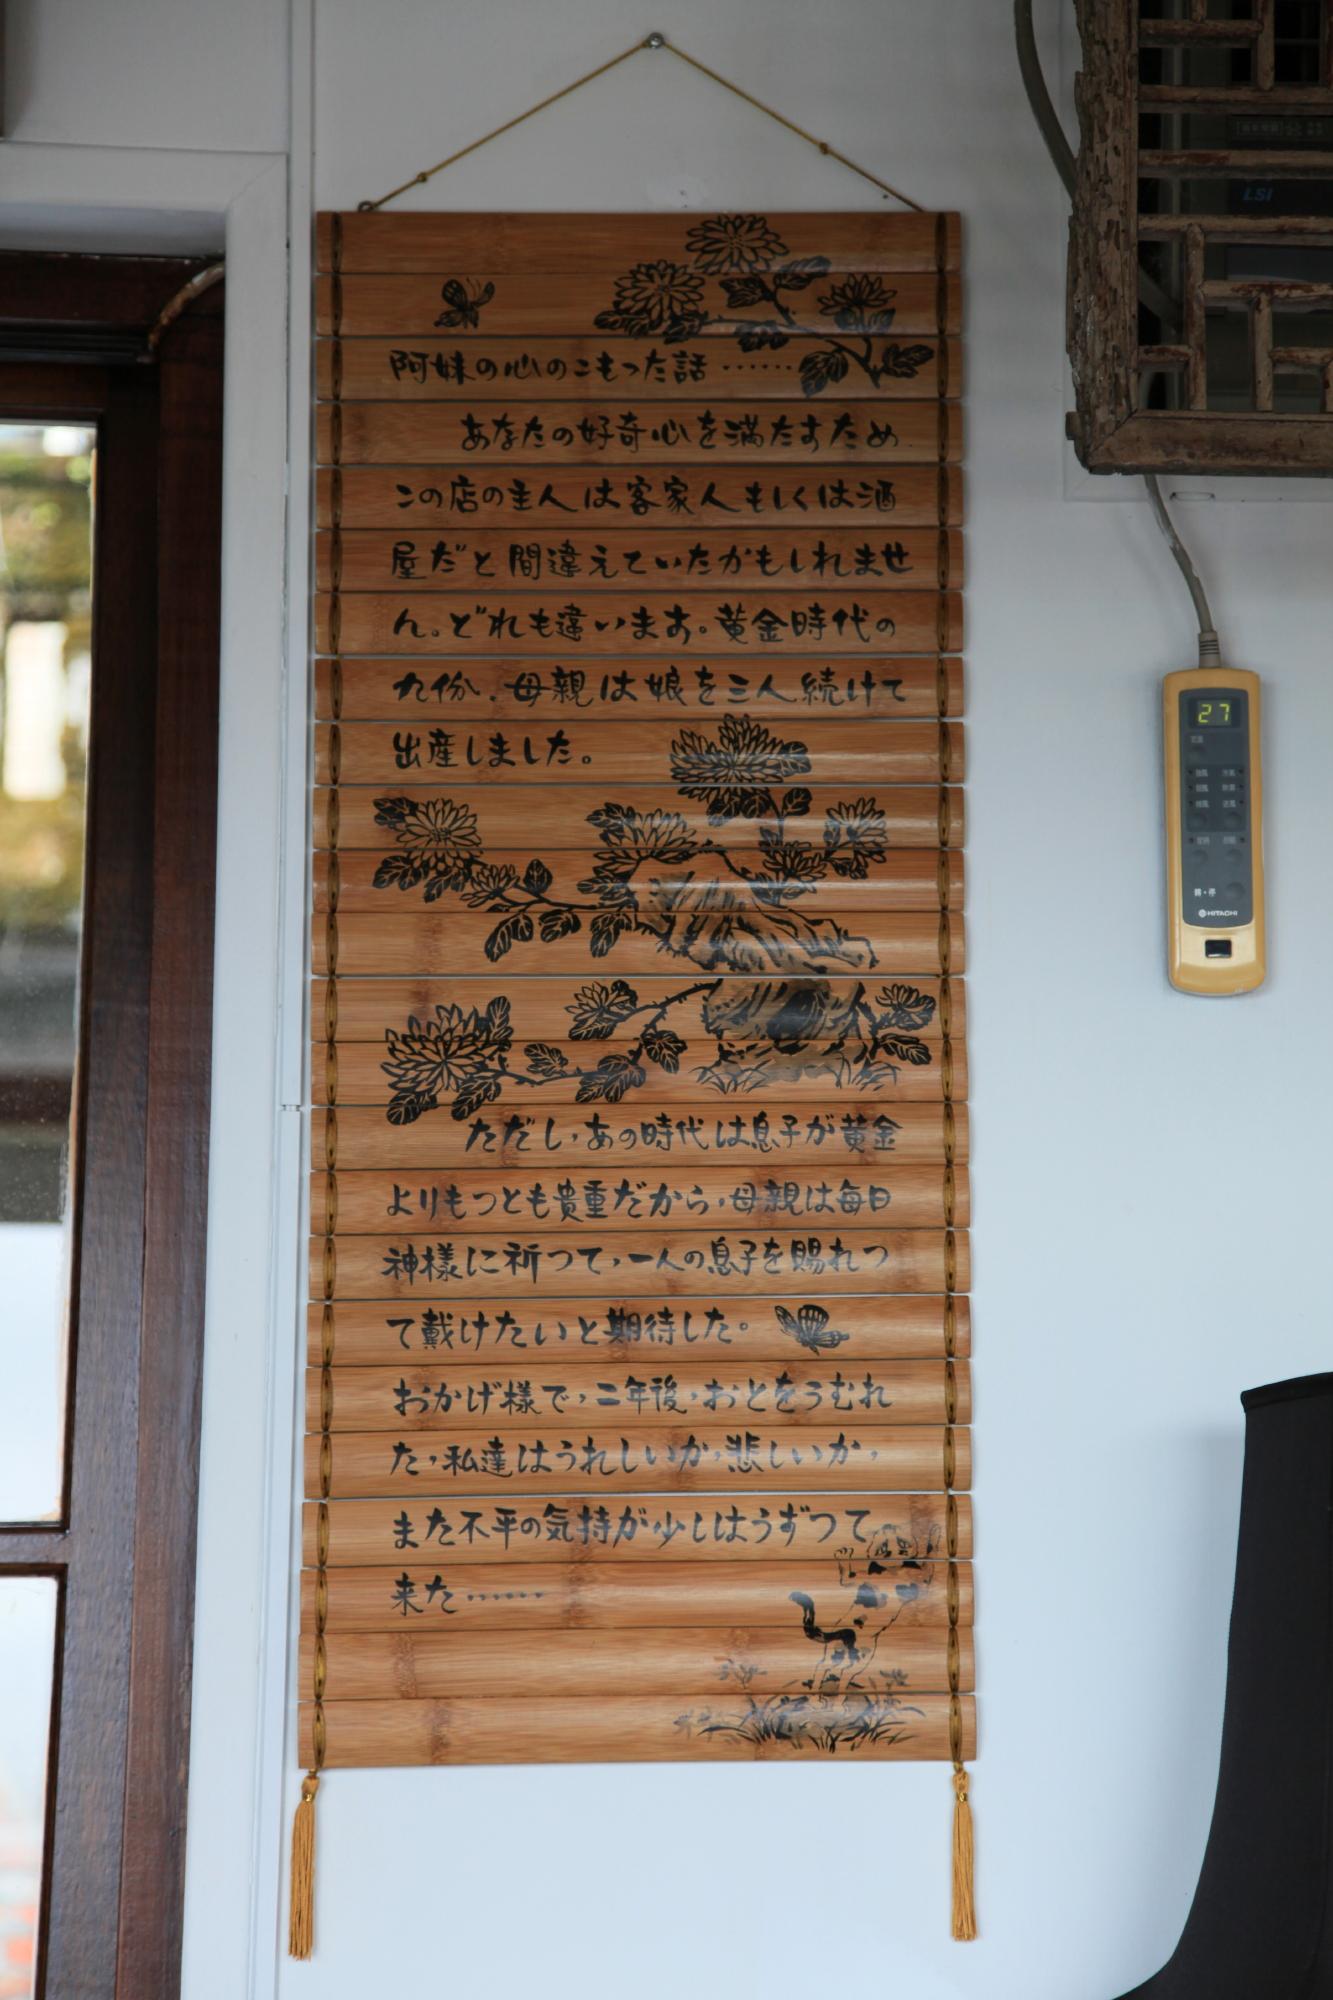 阿妹の心のこもった話……
あなたの好奇心を満たすため
この店の主人は客家人もしくは酒
屋だと間違えていたかもしれませ
ん。どれも違います。黄金時代の
九份、母親は娘を三人続けて
出産しました。
ただし、あの時代は息子が黄金
よりもつとも貴重だから、母親は毎日
神様に祈つて、一人の息子を賜れつ
て戴けたいと期待した。
おかげ様で、二年後、おとをうむれ
た、私達はうれしいか、悲しいか、
また不平の気持が少しはうずつて
来た……
LSI
27
HITACHI